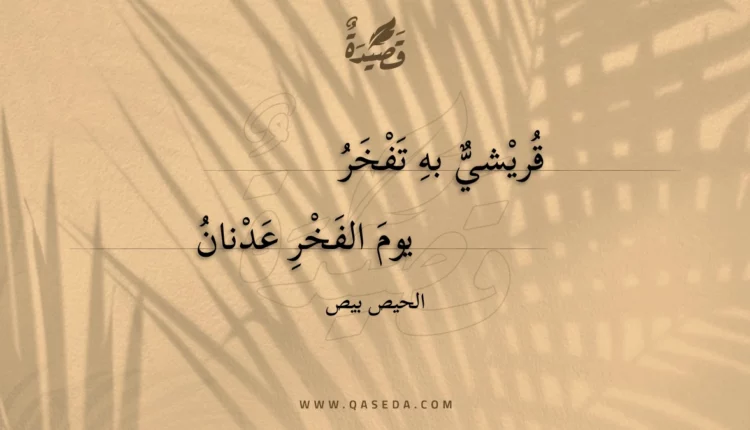 قَصِيْدَةٌ
قُريْشيٌّ بهِ تَفْخَرُ
يومَ الفَخْرِ عَدْنانُ
الحيص بيص
WWW.QASEDA.COM